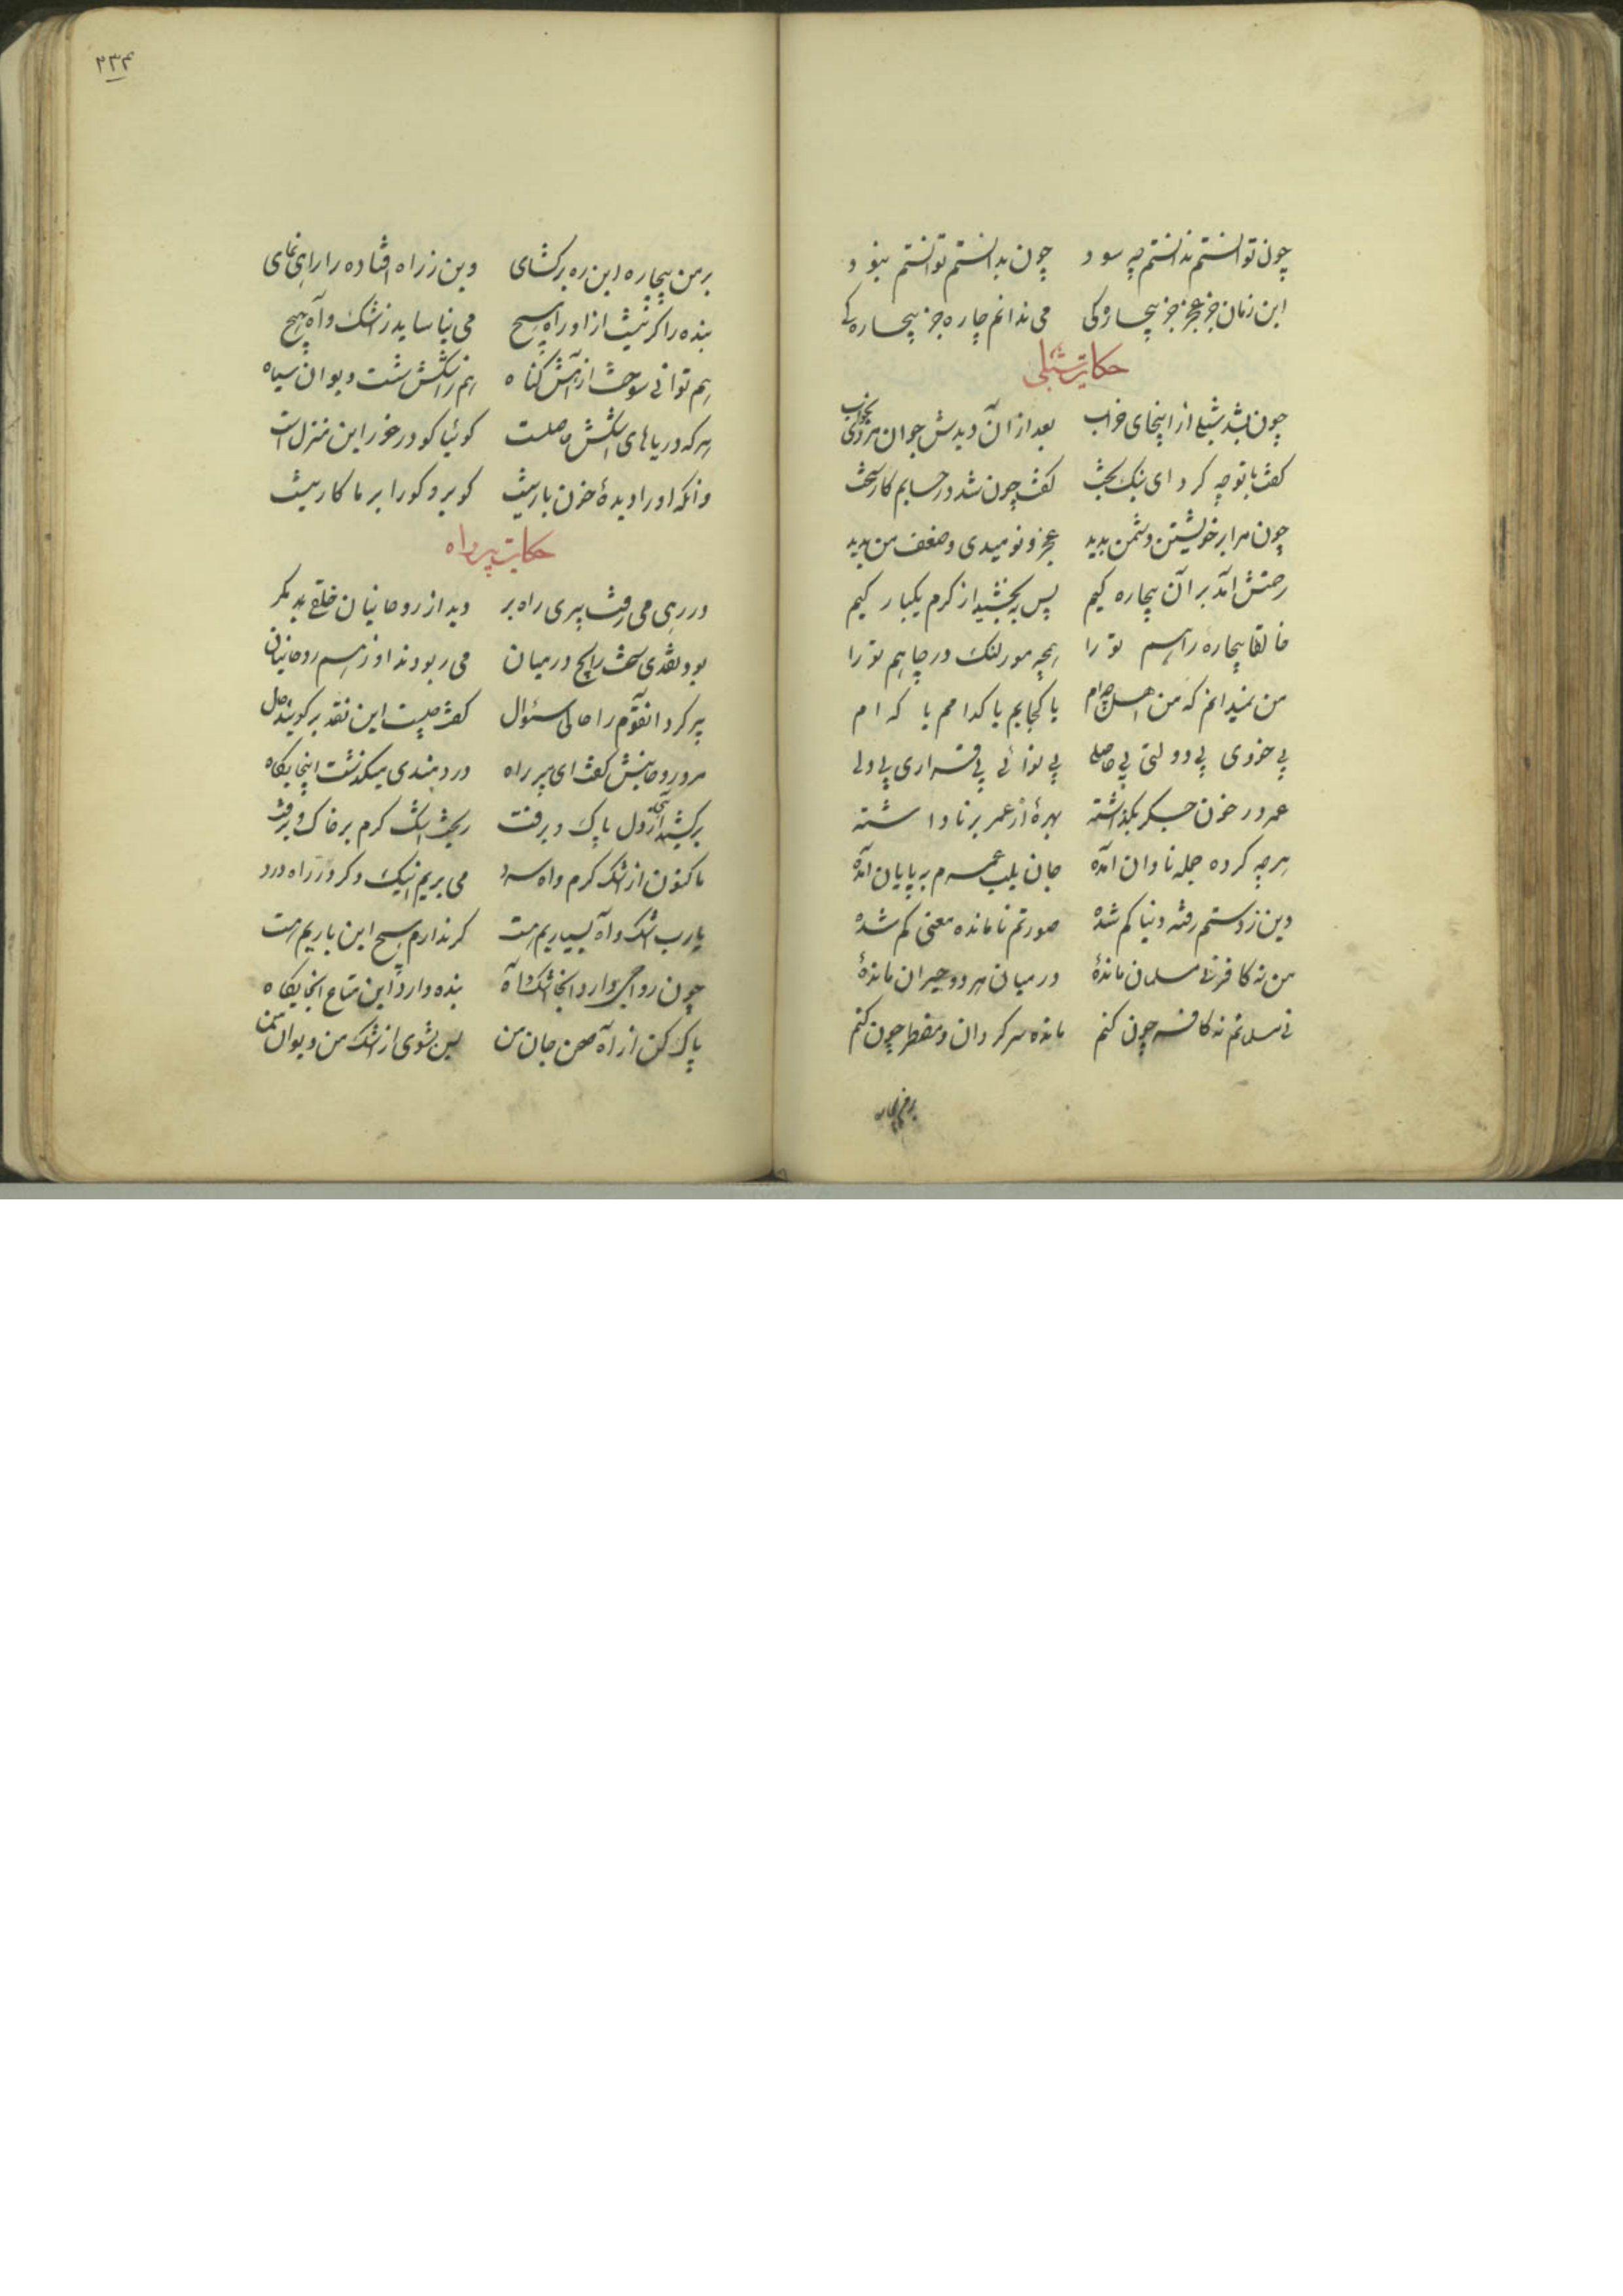 چون توانستم ندانستم چه سود چون بدانستم توانستم نبود
این زمان جز عجز جز بیچارگی می ندانم چاره جز بیچارگی
حکایت شبلی
چون بشد شبلی از اینجای خراب بعد از آن دیدش جوان مردی بخواب
گفت با تو چه کرد ای نیک بخت گفت چون شد در حسابم کار سخت
چون مرا بر خویشتن دشمن بدید عجز و نومیدی و ضعف من بدید
رحمتش آمد بر آن بیچاره کیم پس ببخشید از کرم یکبار کیم
خالقا بیچاره راهم تو را همچو مور لنگ در چاهم تو را
من نمیدانم که من اهل چه ام یا کجایم یا کدامم یا که ام
بی خودی بی دولتی بی حاصلی بی نوائی بی قراری بی دلی
عمر در خون جگر بگذاشته بهرهٔ از عمر برنا داشته
هرچه کرده جمله تاوان آمده جان بلب عمرم به پایان آمده
دین ز دستم رفته دنیا کم شده صورتم نامانده معنی کم شده
من نه کافر نه مسلمان ماندهٔ در میان هر دو حیران ماندهٔ
نی مسلمانم نه کافر چون کنم مانده سرگردان و مضطر چون کنم
۲۳۴
بر من بیچاره این ره برگشای وین ز راه افتاده را راهی نمای
بنده را گر نیست از او راه هیچ می نیاساید ز اشک و آه هیچ
هم توانی سوخت از آهش گناه هم ز اشکش شست دیوان سیاه
هر که دریاهای اشکش حاصلست گو بیا کو در خور این منزل است
وانکه او را دیدهٔ خون بار نیست گو برو کو را بر ما کار نیست
حکایت پیر راه
در رهی می رفت پیری راه بر دید از روحانیان خلقی مگر
بود نقدی سخت رایج در میان می ربودند او ز هم روحانیان
پیر کرد آنقوم را حالی سئوال گفت چیست این نقد برگویید حال
مرد روحانیش گفت ای پیر راه دردمندی میگذشت اینجایگاه
برکشید آهی ز دل پاک و برفت ریخت اشک گرم بر خاک و برفت
ما کنون از اشک گرم و آه سرد می بریم از یک دگر در راه درد
یارب اشک و آه بسیاریم هست گر ندارم هیچ این باریم هست
چون رواجی دارد آنجا اشک و آه بنده دارد این متاع آنجایگاه
پاک کن از آه صحن جان من پس بشوی از اشک من دیوان من